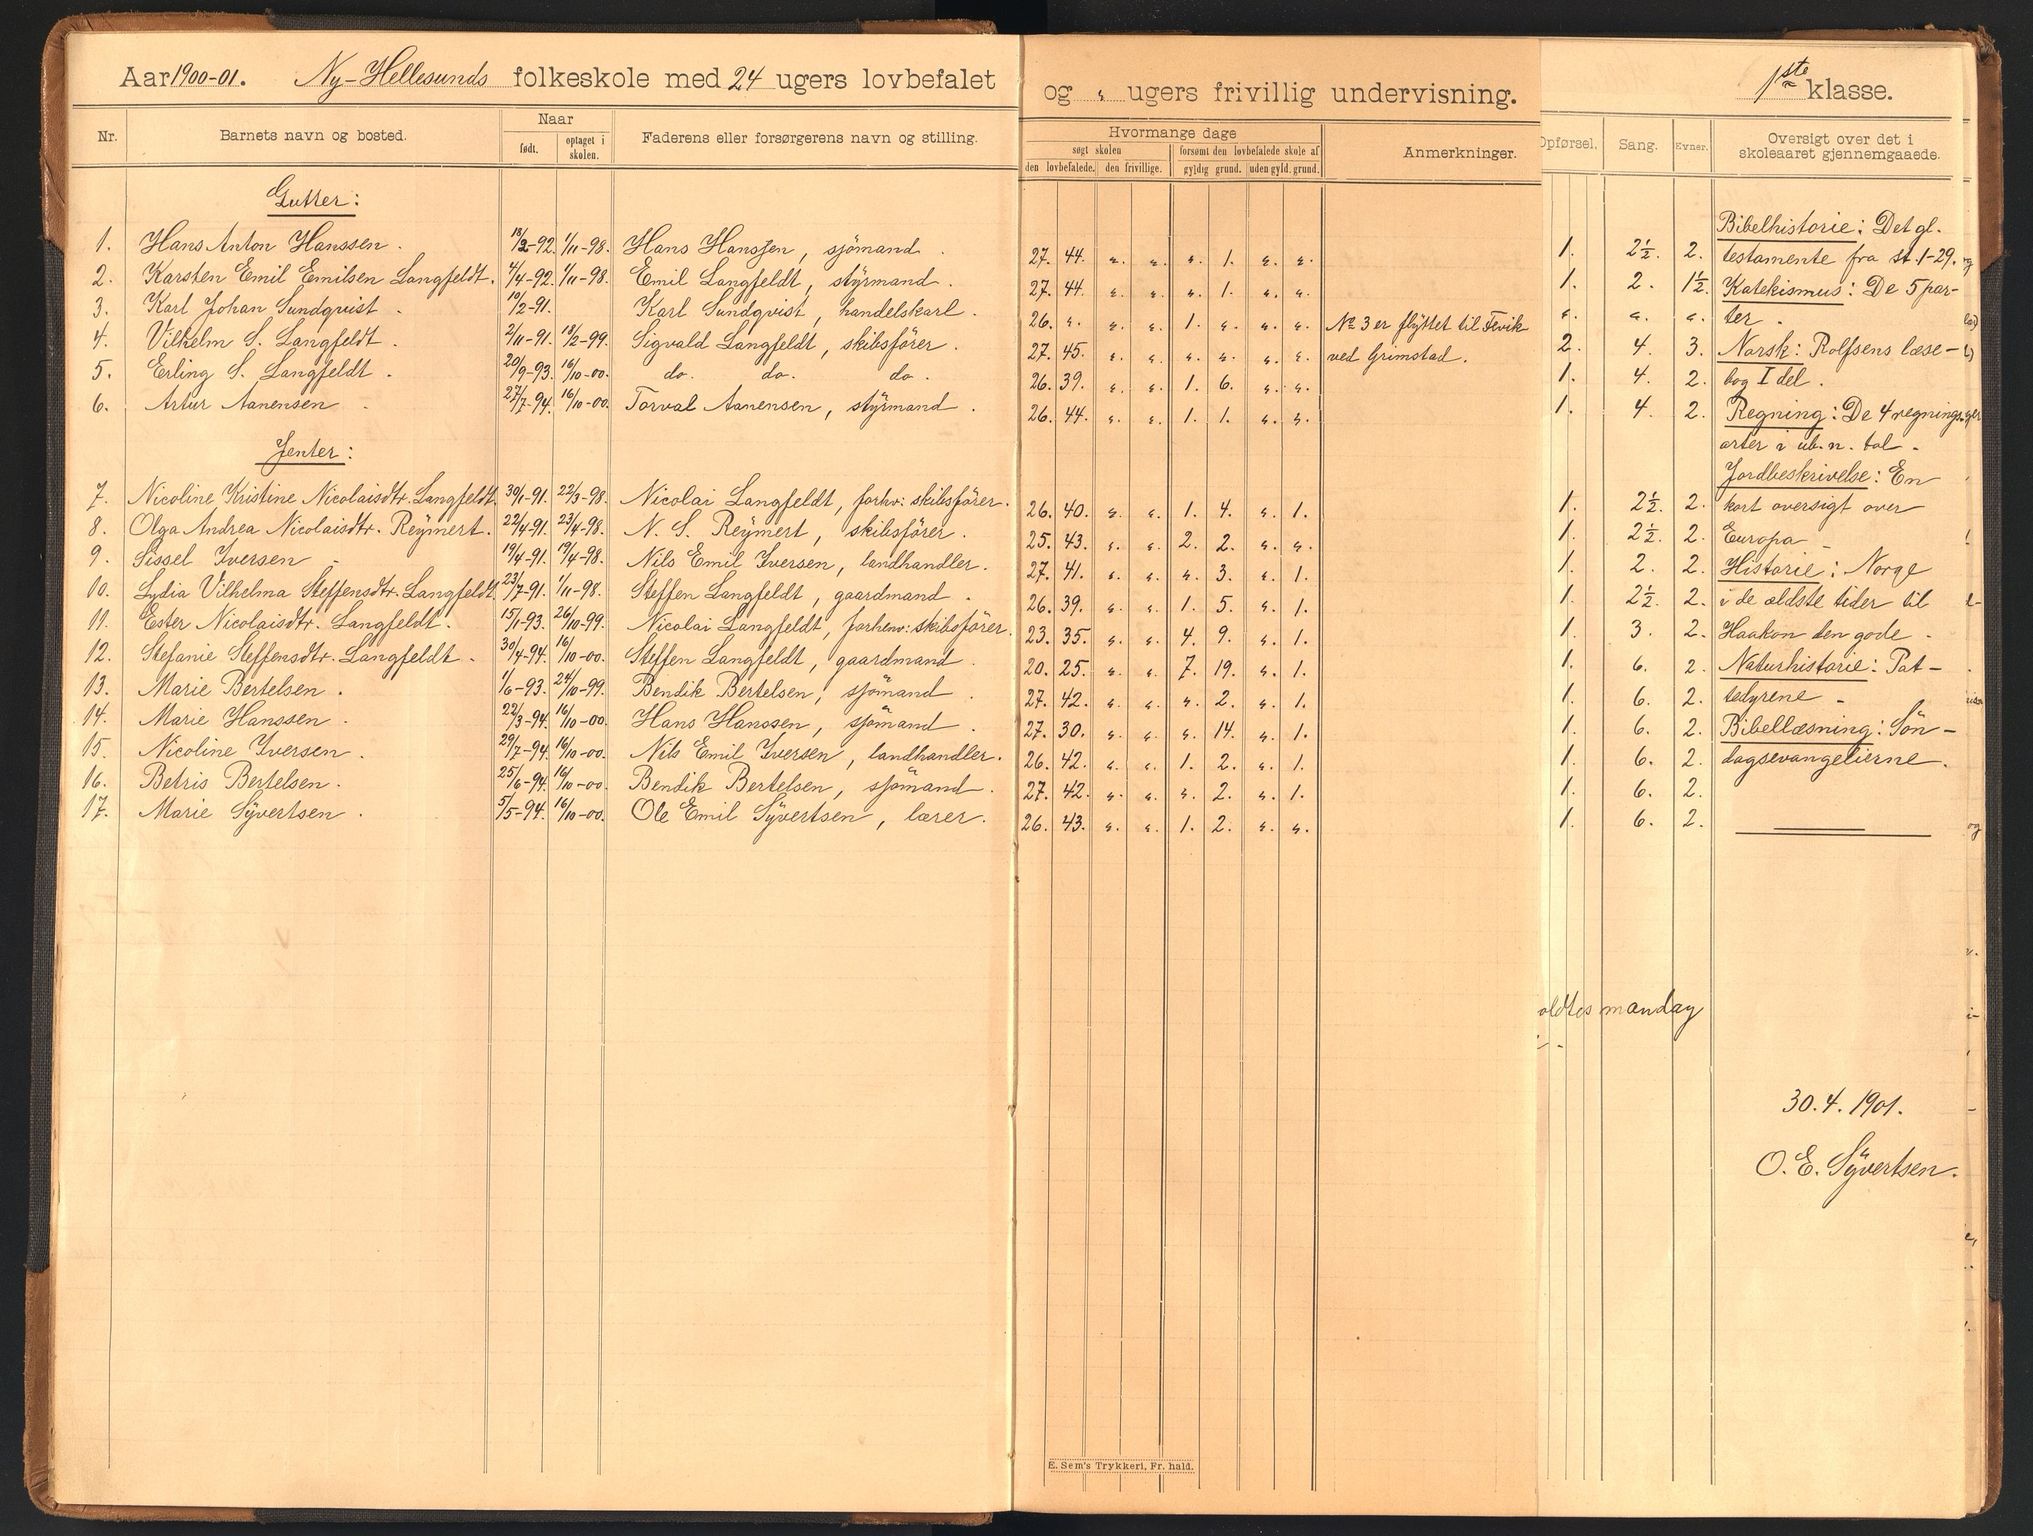 Aar 1900-01. Ny-Hellesunds folkeskole med 24 ugers lovbefalet
Nr. Barnets navn og bosted. Naar født. optaget i skolen. Faderens eller forsørgerens navn og stilling.
Gutter:
1. Hans Anton Hanssen. 18/2-92. 1/11-98. Hans Hanssen, sjömand.
2. Karsten Emil Emilsen Langfeldt. 4/4-92. 1/11-98. Emil Langfeldt, styrmand.
3. Karl Johan Sundqvist. 10/2-91. Karl Sundqvist, handelskarl.
4. Vilhelm S. Langfeldt. 2/11-91. 13/2-99. Sigvald Langfeldt, skibsförer.
5. Erling S. Langfeldt. 20/9-93. 16/10-00. do. do. do.
6. Artur Aanensen. 27/7-94. 16/10-00. Torval Aanensen, styrmand.
Jenter:
7. Nicoline Kristine Nicolaisdtr. Langfeldt. 30/1-91. 22/3-98. Nicolai Langfeldt, forhv: skibsförer.
8. Olga Andrea Nicolaisdtr. Reymert. 22/4-91. 23/4-98. N. S. Reymert, skibsförer.
9. Sissel Iversen - 19/4-91. 19/4-98. Nils Emil Iversen, landhandler.
10. Lydia Vilhelma Steffensdtr. Langfeldt. 23/7-91. 1/11-98. Steffen Langfeldt, gaardmand.
11. Ester Nicolaisdtr. Langfeldt. 15/1-93. 26/10-99. Nicolai Langfeldt, forhenv: skibsförer.
12. Stefanie Steffensdtr. Langfeldt. 30/4-94. 16/10-00. Steffen Langfeldt, gaardmand.
13. Marie Bertelsen. 1/6-93. 24/10-99. Bendik Bertelsen, sjömand.
14. Marie Hanssen. 22/3-94. 16/10-00. Hans Hanssen, sjömand.
15. Nicoline Iversen. 29/7-94. 16/10-00. Nils Emil Iversen, landhandler.
16. Betris Bertelsen. 25/6-94. 16/10-00. Bendik Bertelsen, sjömand.
17. Marie Syvertsen. 5/5-94. 16/10-00. Ole Emil Syvertsen, lærer.
og " ugers frivillig undervisning.
Hvormange dage
søgt skolen forsømt den lovbefalede skole af Anmerkninger.
den lovbefalede. den frivillige. gyldig grund. uden gyld. grund.
27. 44. " " " 1. " "
27. 44. " " " 1. " "
26. " " " 1. " " " No 3 er flyttet til Fevik
27. 45. " " " " " " ved Grimstad.
26. 39. " " 1. 6. " "
26. 44. " " 1. 1. " "
26. 40. " " 1. 4. " 1.
25. 43. " " 2. 2. " "
27. 41. " " " 3. " 1.
26. 39. " " 1. 5. " 1.
23. 35. " " 4. 9. " 1.
20. 25. " " 7. 19. " 1.
27. 42. " " " 2. " 1.
27. 30. " " " 14. " 1.
26. 42. " " 1. 2. " 1.
27. 42. " " " 2. " 1.
26. 43. " " 1. 2. " "
E. Sem's Trykkeri, Fr. hald.
1ste klasse.
Opførsel. Sang. Evner. Oversigt over det i
skoleaaret gjennemgaaede.
Bibelhistorie: Det gl.
1. 2½. 2. testamente fra st. 1-29.
1. 2. 1½. Katekismus: De 5 par-
" " " ter.
2. 4. 3. Norsk: Rolfsens læse-
1. 4. 2. bog I del.
1. 4. 2. Regning: De 4 regnings-
arter i ub. n. tal.
Jordbeskrivelse: En
1. 2½. 2. kort oversigt over
1. 2½. 2. Europa -
1. 2. 2. Historie: Norge
1. 2½. 2. i de ældste tider til
1. 3. 2. Haakon den gode.
1. 6. 2. Naturhistorie: Pat-
1. 6. 2. tedyrene -
1. 6. 2. Bibellæsning: Sön-
1. 6. 2. dagsevangelierne.
1. 6. 2.
1. 6. 2.
oldtes mandag
30. 4. 1901.
O. E. Syvertsen.